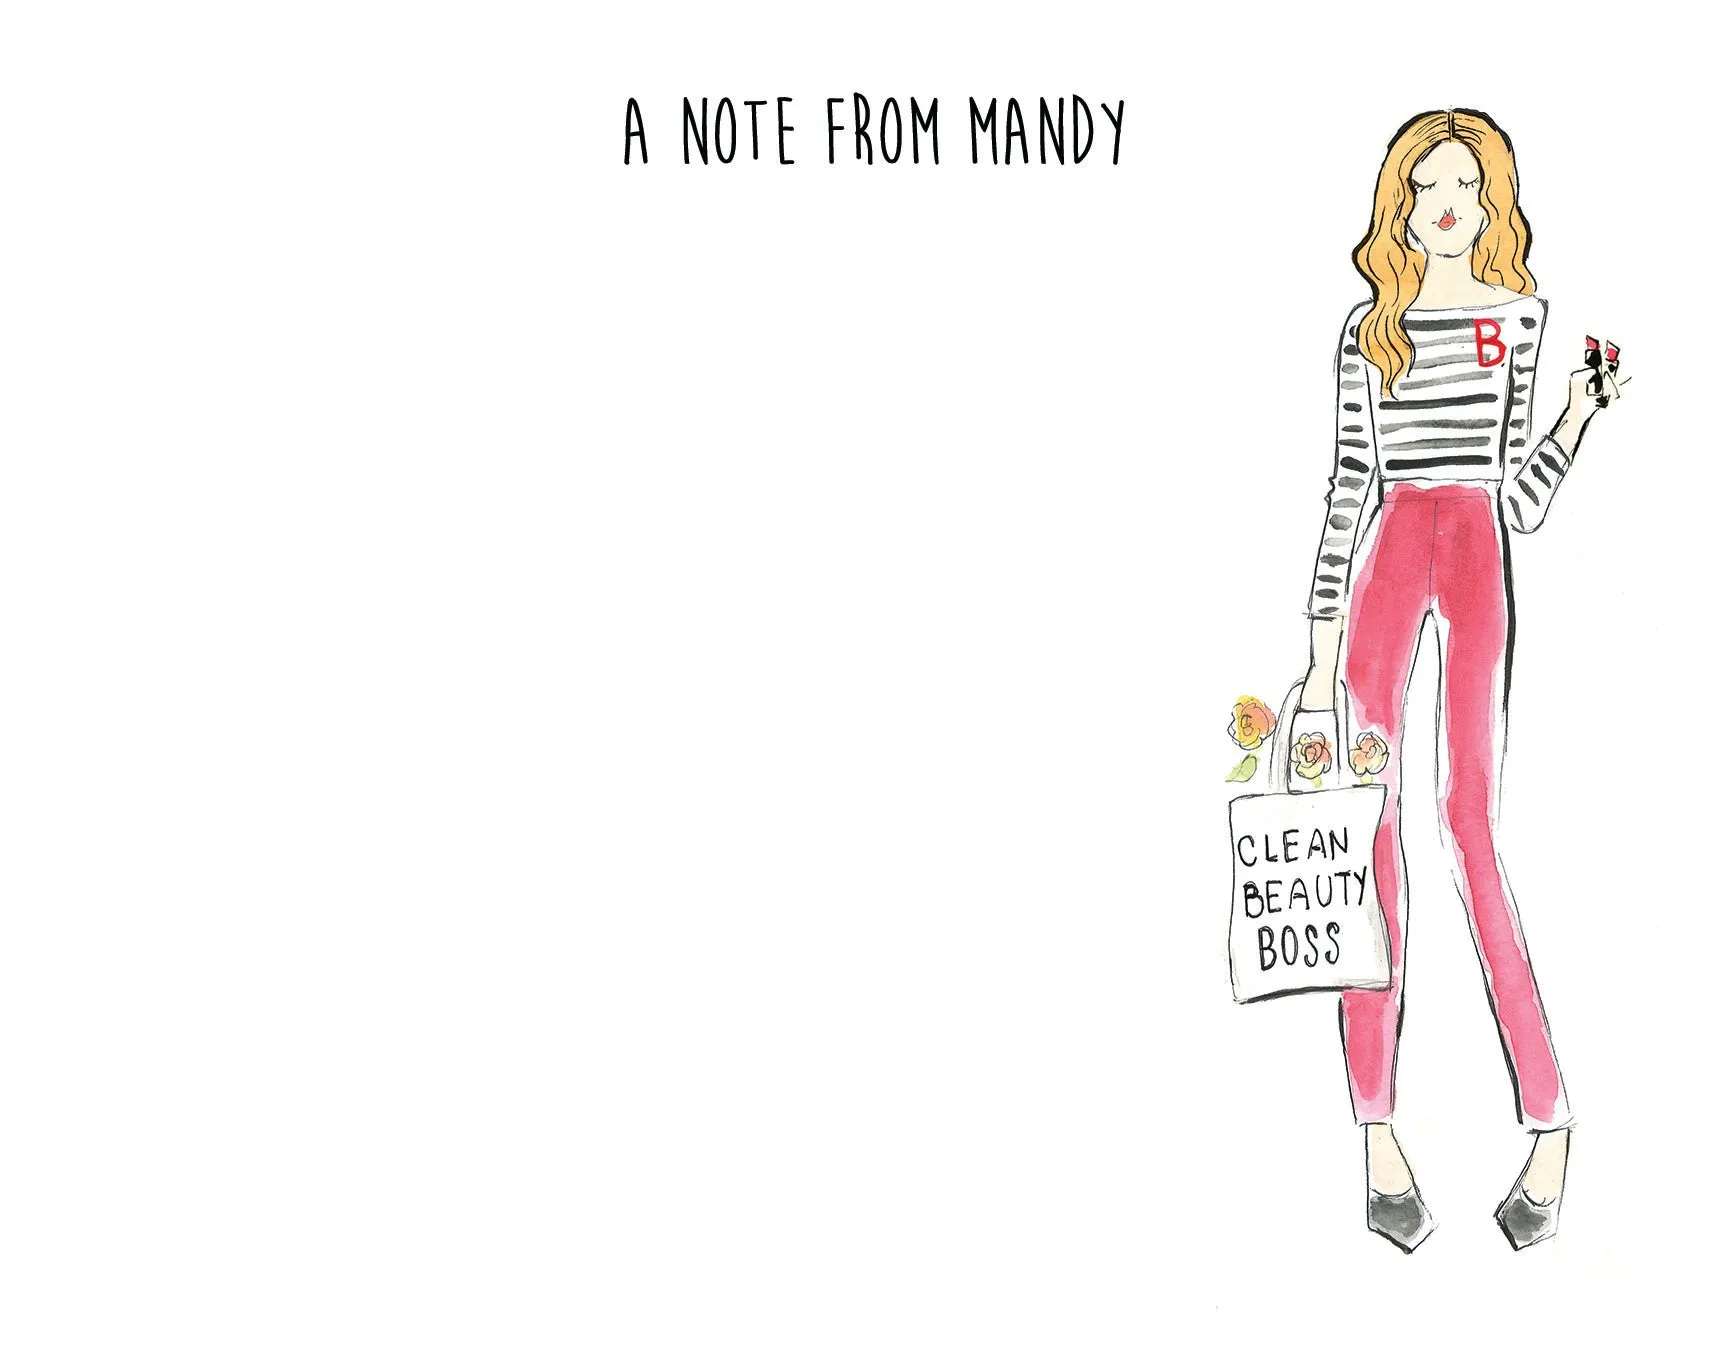 A NOTE FROM MANDY
B
CLEAN
BEAUTY
BOSS